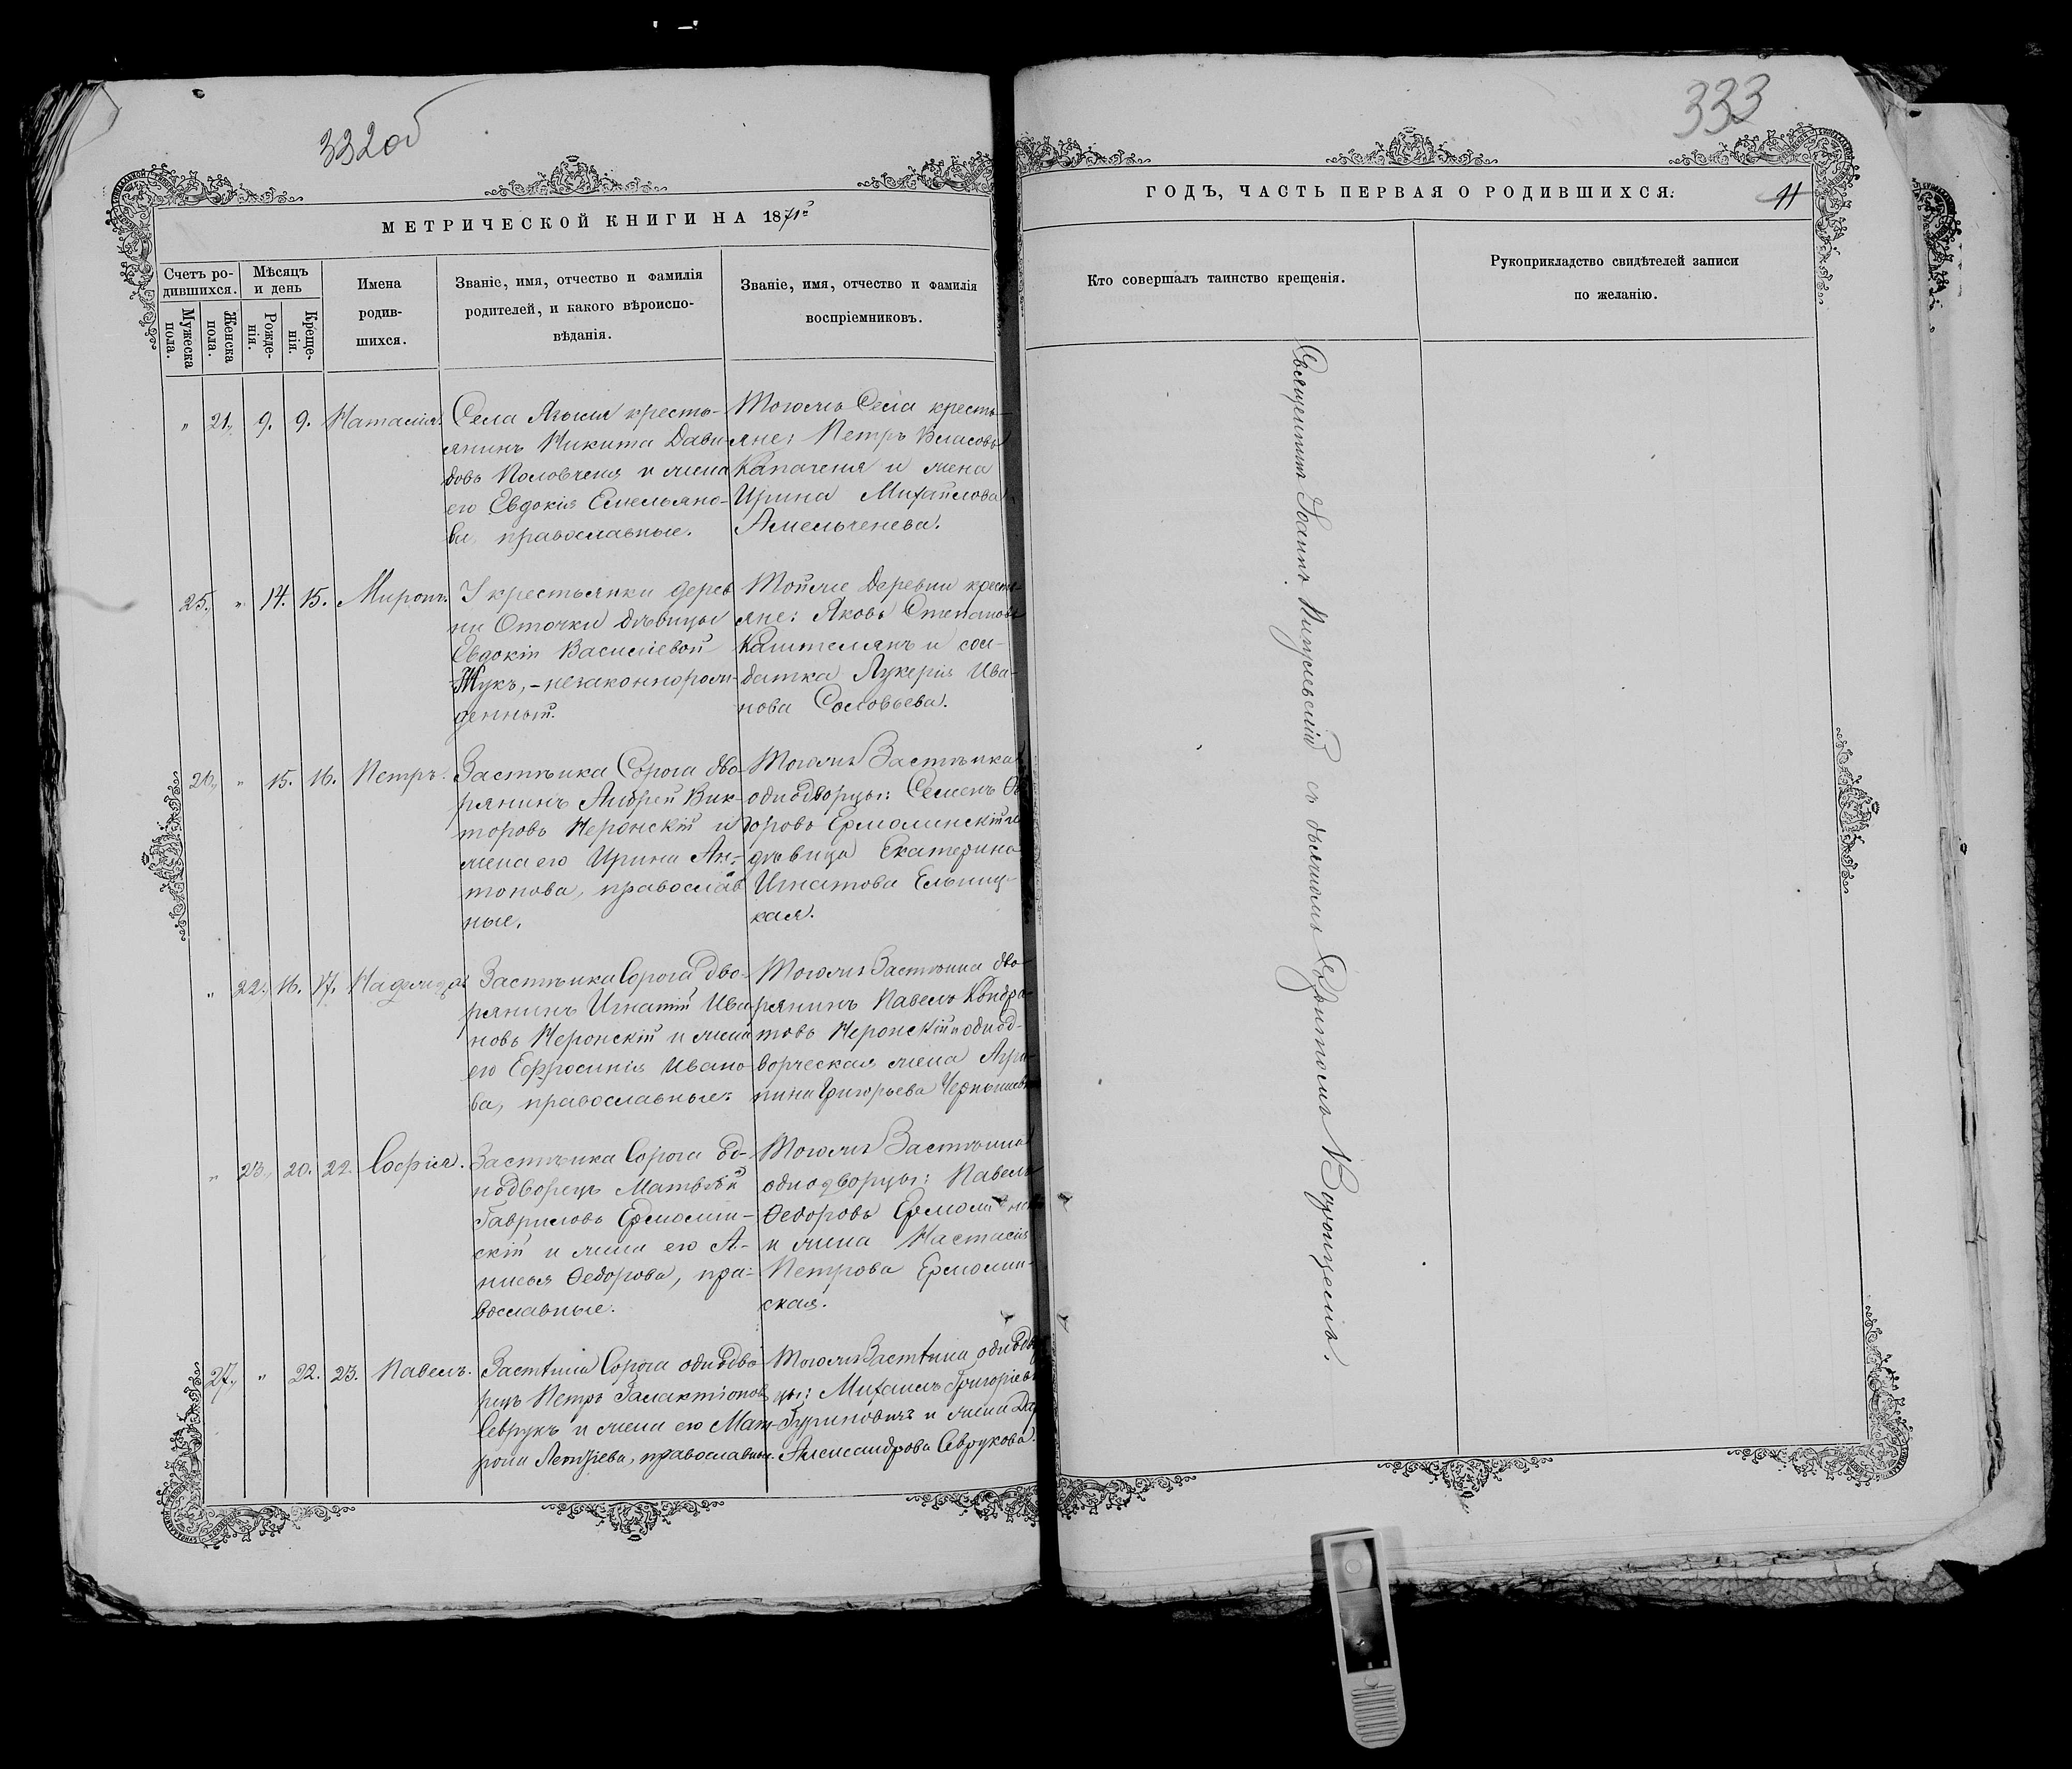 332об
МЕТРИЧЕСКОЙ КНИГИ НА 1871й
Счетъ ро-
дившихся.
Мѣсяцъ
и день
Имена
родив-
шихся.
Званіе, имя, отчество и фамилія
родителей, и какого вѣроиспо-
вѣданія.
Званіе, имя, отчество и фамилія
воспріемниковъ.
Мужеска
пола.
Женска
пола.
Рожде-
нія.
Креще-
нія.
" 21, 9. 9. Наталія.
Села крестья-
янинъ Никита Дави-
довъ Половченя и жена
его Евдокія Емельяно-
ва, православные.
Тогожъ Села кресть-
яне: Петръ Власовъ
Капаченя и жена
Ирина Михайлова
Амельченева.
25. " 14. 15. Миронъ.
У крестьянки дерев
ни Оточки дѣвицы
Евдокіи Василіевой
Жукъ, – незаконнорож-
денный.
Тойже Деревни кресть
яне: Яковъ Степановъ
Каштелянъ и сол-
датка Лукерія Ива-
нова Соловьева.
26, " 15. 16. Петръ.
Застѣнка Сорога дво-
рянинъ Андрей Вик-
торовъ Неронскій и
жена его Ирина Ан-
тонова, православ
ные.
Тогожъ Застѣнка
однодворцы: Семенъ Ѳе
доровъ Ермолинскій и
дѣвица Екатерина
Игнатова Ельниц-
кая.
" 22. 16. 17. Надежда.
Застѣнка Сорога дво-
рянинъ Игнатій Ива
новъ Неронскій и жена
его Ефросинія Ивано-
ва, православные.
Тогожъ Застѣнка дво
рянинъ Павелъ Кондра-
товъ Неронскій и однод-
ворческая жена Агра-
пина Григорьева
" 23, 20. 22. Софія.
Застѣнка Сорога од-
нодворецъ Матвѣй
Гавриловъ Ермолин-
скій и жена его А-
нисья Ѳедорова, пра-
вославные.
Тогожъ Застѣнка
однодворцы: Павелъ
Ѳедоровъ
и жена Настасія
Петрова Ермолин-
ская.
27, " 22. 23. Павелъ.
Застѣнка Сорога однодво
рецъ Петръ Галактіонов
Севрукъ и жена его Мат-
рона православные.
Тогожъ Застѣнка однодвор
цы: Михаилъ Григорьевъ
Гуриновичъ и жена
Александрова Севрукова.
333
ГОДЪ, ЧАСТЬ ПЕРВАЯ О РОДИВШИХСЯ.
11
Кто совершалъ таинство крещенія.
Рукоприкладство свидѣтелей записи
по желанію.
Священникъ Іоаннъ съ дьячкомъ